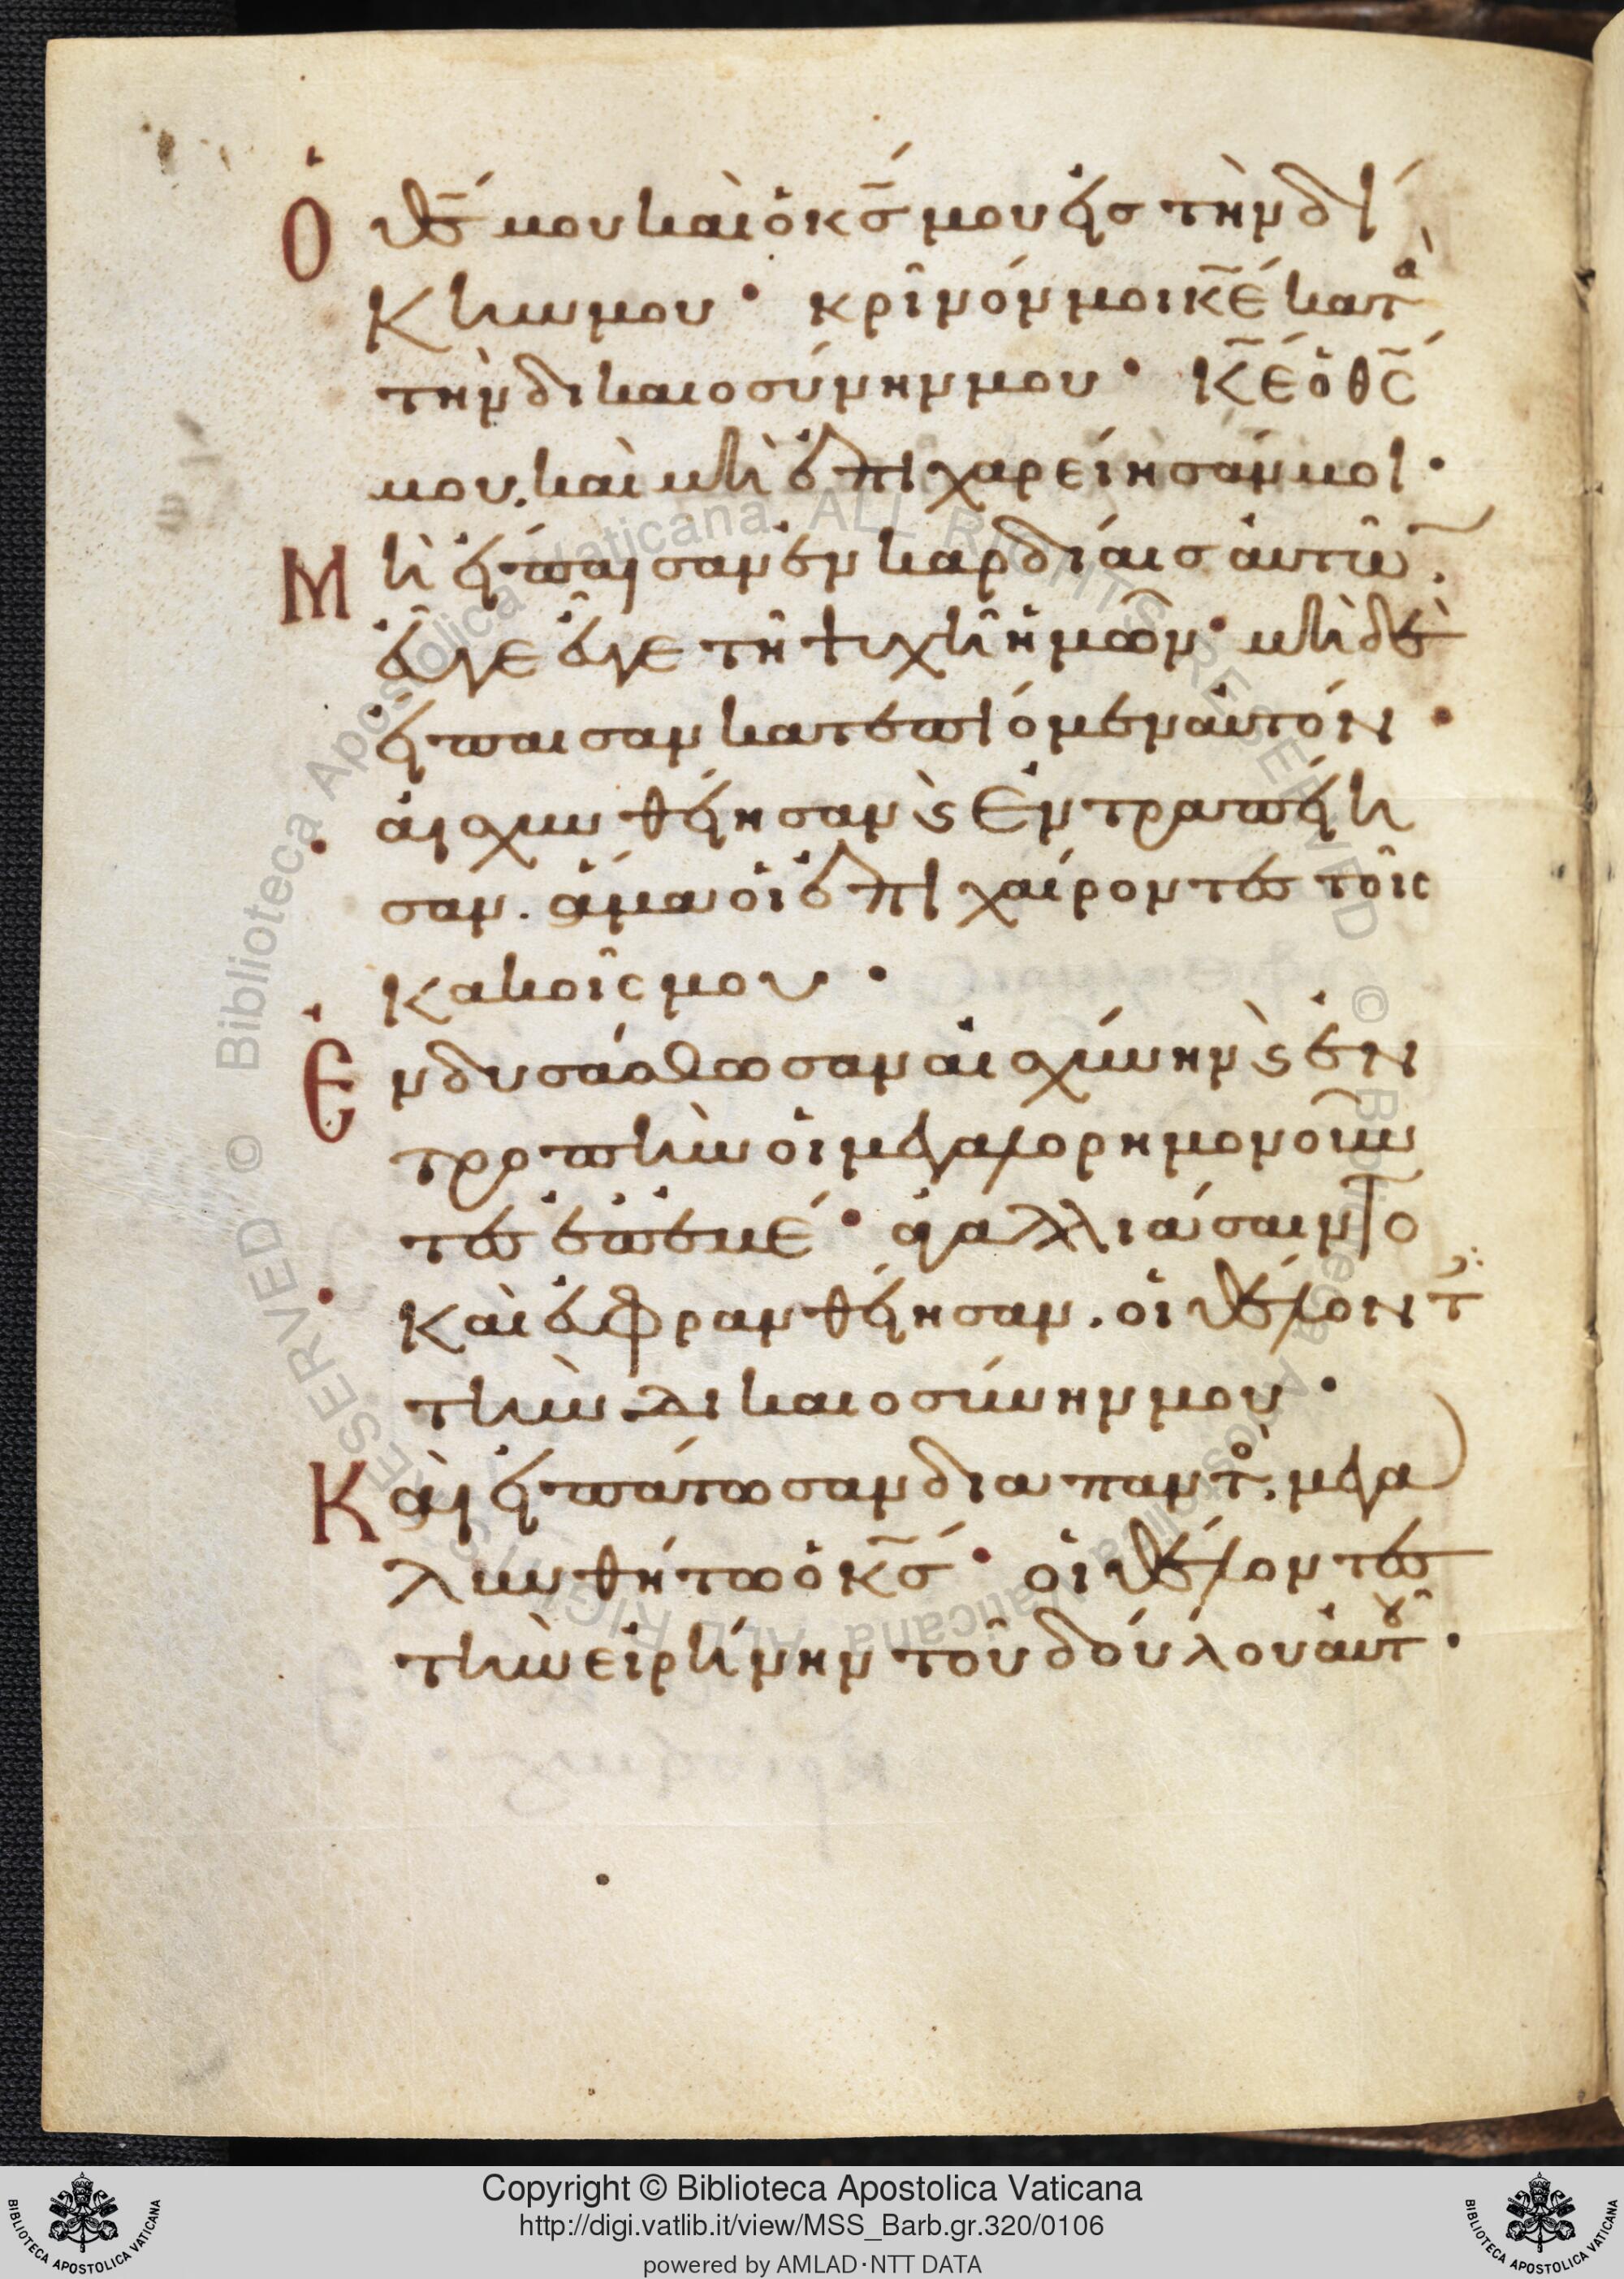 Ὁ θς̄ μου καὶ ὁ κς̄ μου εἰς τὴν δί
κην μου · κρῖνόν μοι κε̄ κατὰ
τὴν δικαιοσύνην μου · κε̄ ὁ θς̄
μου, καὶ μὴ ἐπιχαρείησάν μοι ·
Μὴ εἴπαισαν ἐν καρδίαις αὐτῶ̅.
εὖγε εὖγε τῆ ψυχῆ ἡμῶν · μὴ δὲ
εἴπαισαν κατεπίομεν αὐτόν ·
αἰσχυνθείησαν ϗ ἐντραπείη
σαν. ἅμα οἱ ἐπιχαίροντες τοῖς
κακοῖς μου ·
Ἐνδυσάσθωσαν αἰσχύνην ϗ ἐν
τροπὴν οἱ μεγαλορημονοῦν
τες ἐπ ἐμέ · ἀγαλλιάσαιντο
καὶ εὐφρανθείησαν. οἱ θέλοντ
τὴν δικαιοσύνην μου ·
Καὶ εἰπάτωσαν διαπαντο. μεγα
λυνθήτω ὁ κς̄ · οἱ θέλοντες
τὴν εἰρήνην τοῦ δούλου αὐτοῦ ·
Copyright © Biblioteca Apostolica Vaticana
http://digi.vatlib.it/view/MSS_Barb.gr.320/0106
powered by AMLAD·NTT DATA
BIBLIOTECA APOSTOLICA VATICANA
BIBLIOTECA APOSTOLICA VATICANA